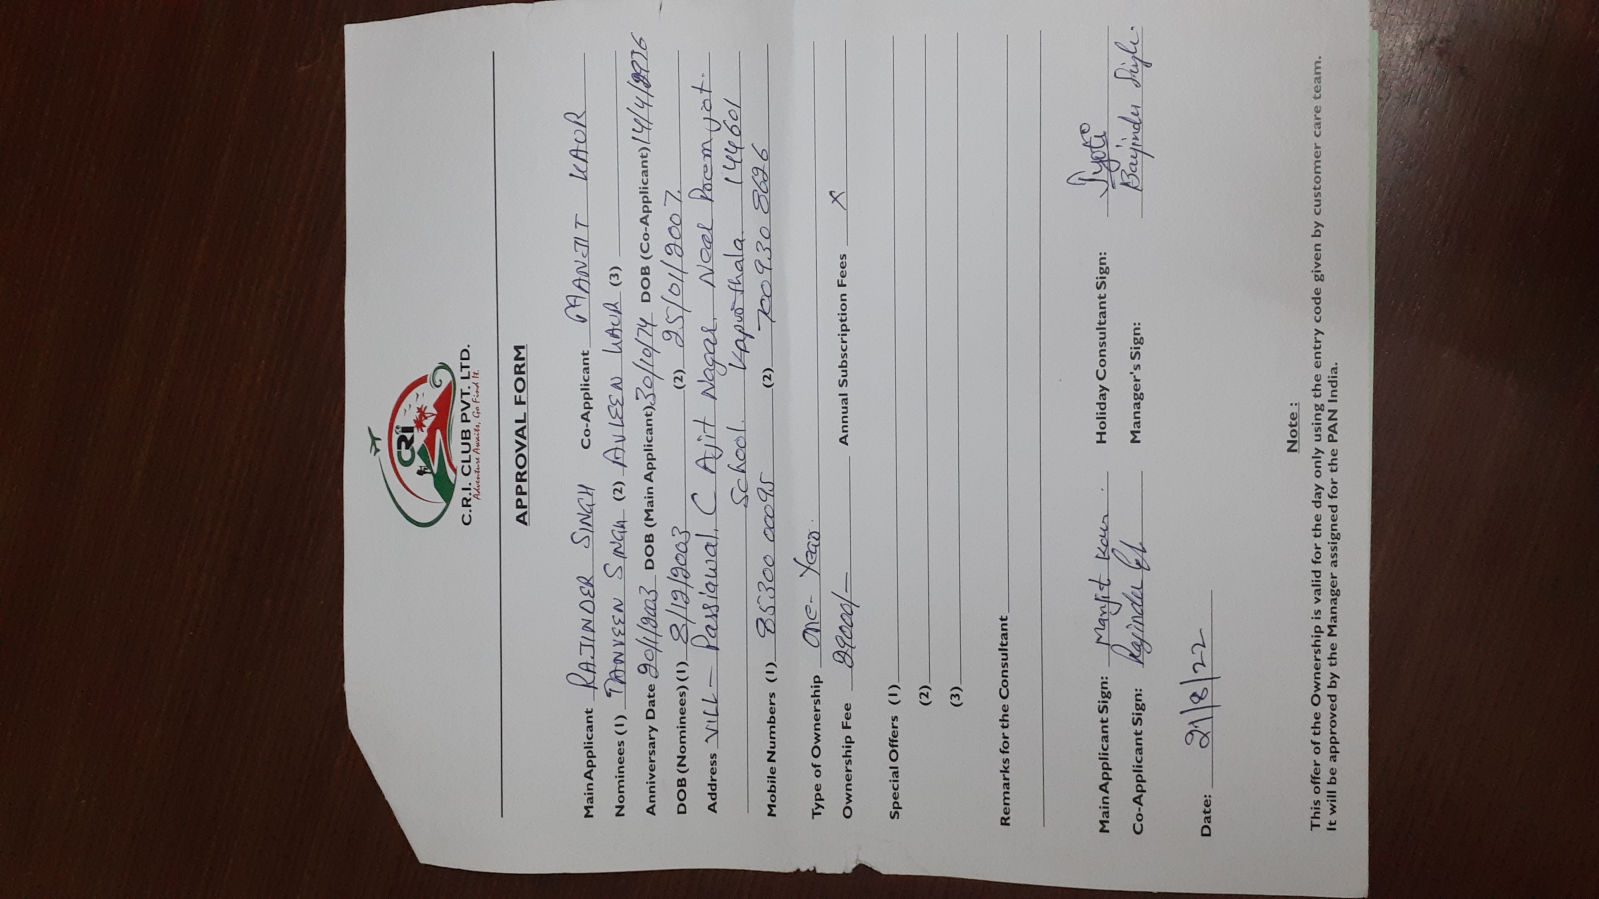 CRI
C.R.I. CLUB PVT. LTD.
Adventure Awaits, Go Find It.
APPROVAL FORM
Main Applicant RAJINDER SINGH Co-Applicant MANJIT KAUR
Nominees (1) TANVEEN SINGH (2) AVLEEN KAUR (3)
Anniversary Date 20/1/2003 DOB (Main Applicant) 30/10/74 DOB (Co-Applicant) 14/4/1976
DOB (Nominees) (1) 8/12/2003 (2) 25/01/2007
Address VILL - Passiawal, C Ajit Nagar, Neel
School. Kapurthala 144601
Mobile Numbers (1) 85300 00095 (2) 700930 8626
Type of Ownership One- Year.
Ownership Fee 29000/- Annual Subscription Fees x
Special Offers (1)
(2)
(3)
Remarks for the Consultant
Main Applicant Sign: Manjit Kaur. Holiday Consultant Sign: Jyoti
Co-Applicant Sign: Rajinder Manager's Sign:
Date: 27/8/22
Note :
This offer of the Ownership is valid for the day only using the entry code given by customer care team.
It will be approved by the Manager assigned for the PAN India.